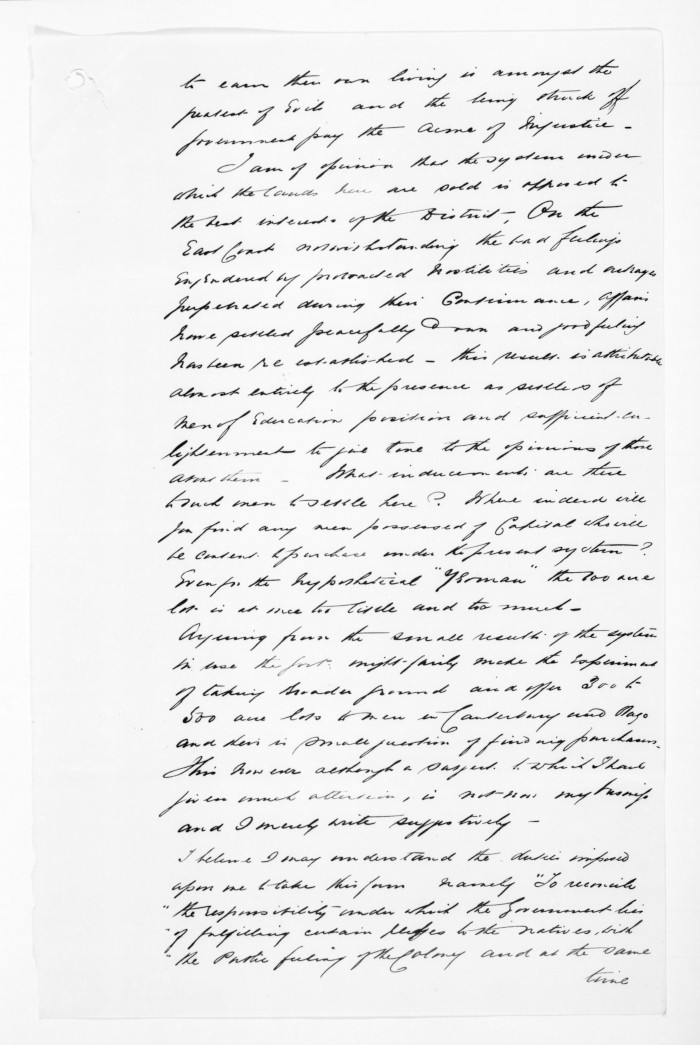 to earn their own living is amongst the
greatest of Evils and the being struck off
Government pay the acme of Injustice -
I am of opinion that the system under
which the lands here are sold is opposed to
the best interests of the District, On the
East Coast notwithstanding the bad feelings
engendered by protracted hostilities and outrages
perpetrated during their Continuance, affairs
have settled peacefully down and good feeling
has been re established - this result is attributable
almost entirely to the presence as settlers of
men of Education position and sufficient en-
lightenment to give tone to the opinions of those
about them - What inducements are there
to such men to settle here? Where indeed will
you find any men possessed of Capital who will
be content to purchase under the present system?
Even for the hypothetical "Yeoman" the 200 acre
lot is at once too little and too much -
Arguing from the small results of the system
in use the Govt. might fairly make the experiment
of taking broader ground and offer 300 to
500 acre lots to men in Canterbury and Otago
and there is small question of finding purchasers.
This however although a subject to which I have
given much attention, is not now my business
and I merely write suggestively -
I believe I may understand the duties imposed
upon me to take this form namely "To reconcile
"the responsibility under which the Government lies
"of fulfilling certain pledges to the natives, with
"the Public feeling of the Colony and at the same
time